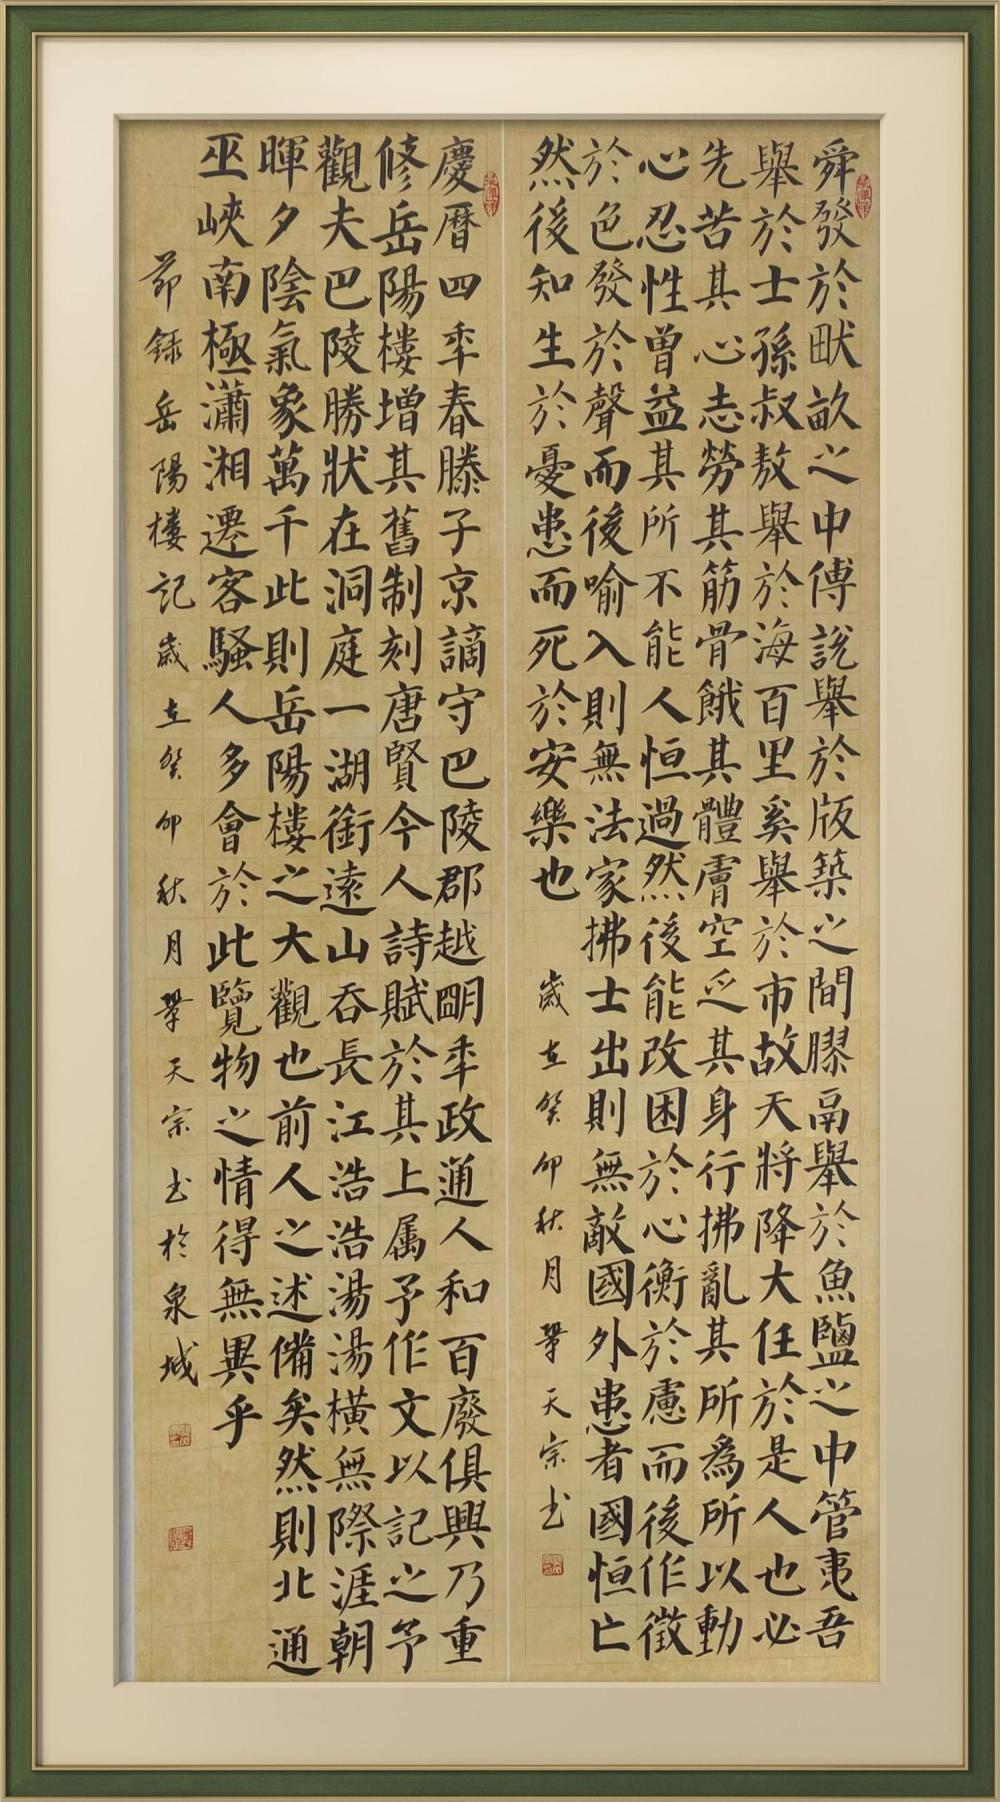 舜發於畎畝之中傅說舉於版築之間膠鬲舉於魚鹽之中管夷吾
舉於士孫叔敖舉於海百里奚舉於市故天將降大任於是人也必
先苦其心志勞其筋骨餓其體膚空乏其身行拂亂其所為所以動
心忍性曾益其所不能人恒過然後能改困於心衡於慮而後作徵
於色發於聲而後喻入則無法家拂士出則無敵國外患者國恒亡
然後知生於憂患而死於安樂也
歲在癸卯秋月鞏天宗书
慶暦四年春滕子京謫守巴陵郡越明年政通人和百廢俱興乃重
修岳陽樓增其舊制刻唐賢今人詩賦於其上属予作文以記之予
觀夫巴陵勝狀在洞庭一湖銜遠山吞長江浩浩湯湯橫無際涯朝
暉夕陰氣象萬千此則岳陽樓之大觀也前人之述備矣然則北通
巫峽南極瀟湘遷客騷人多會於此覽物之情得無異乎
節錄岳陽樓記歲在癸卯秋月鞏天宗书於泉城